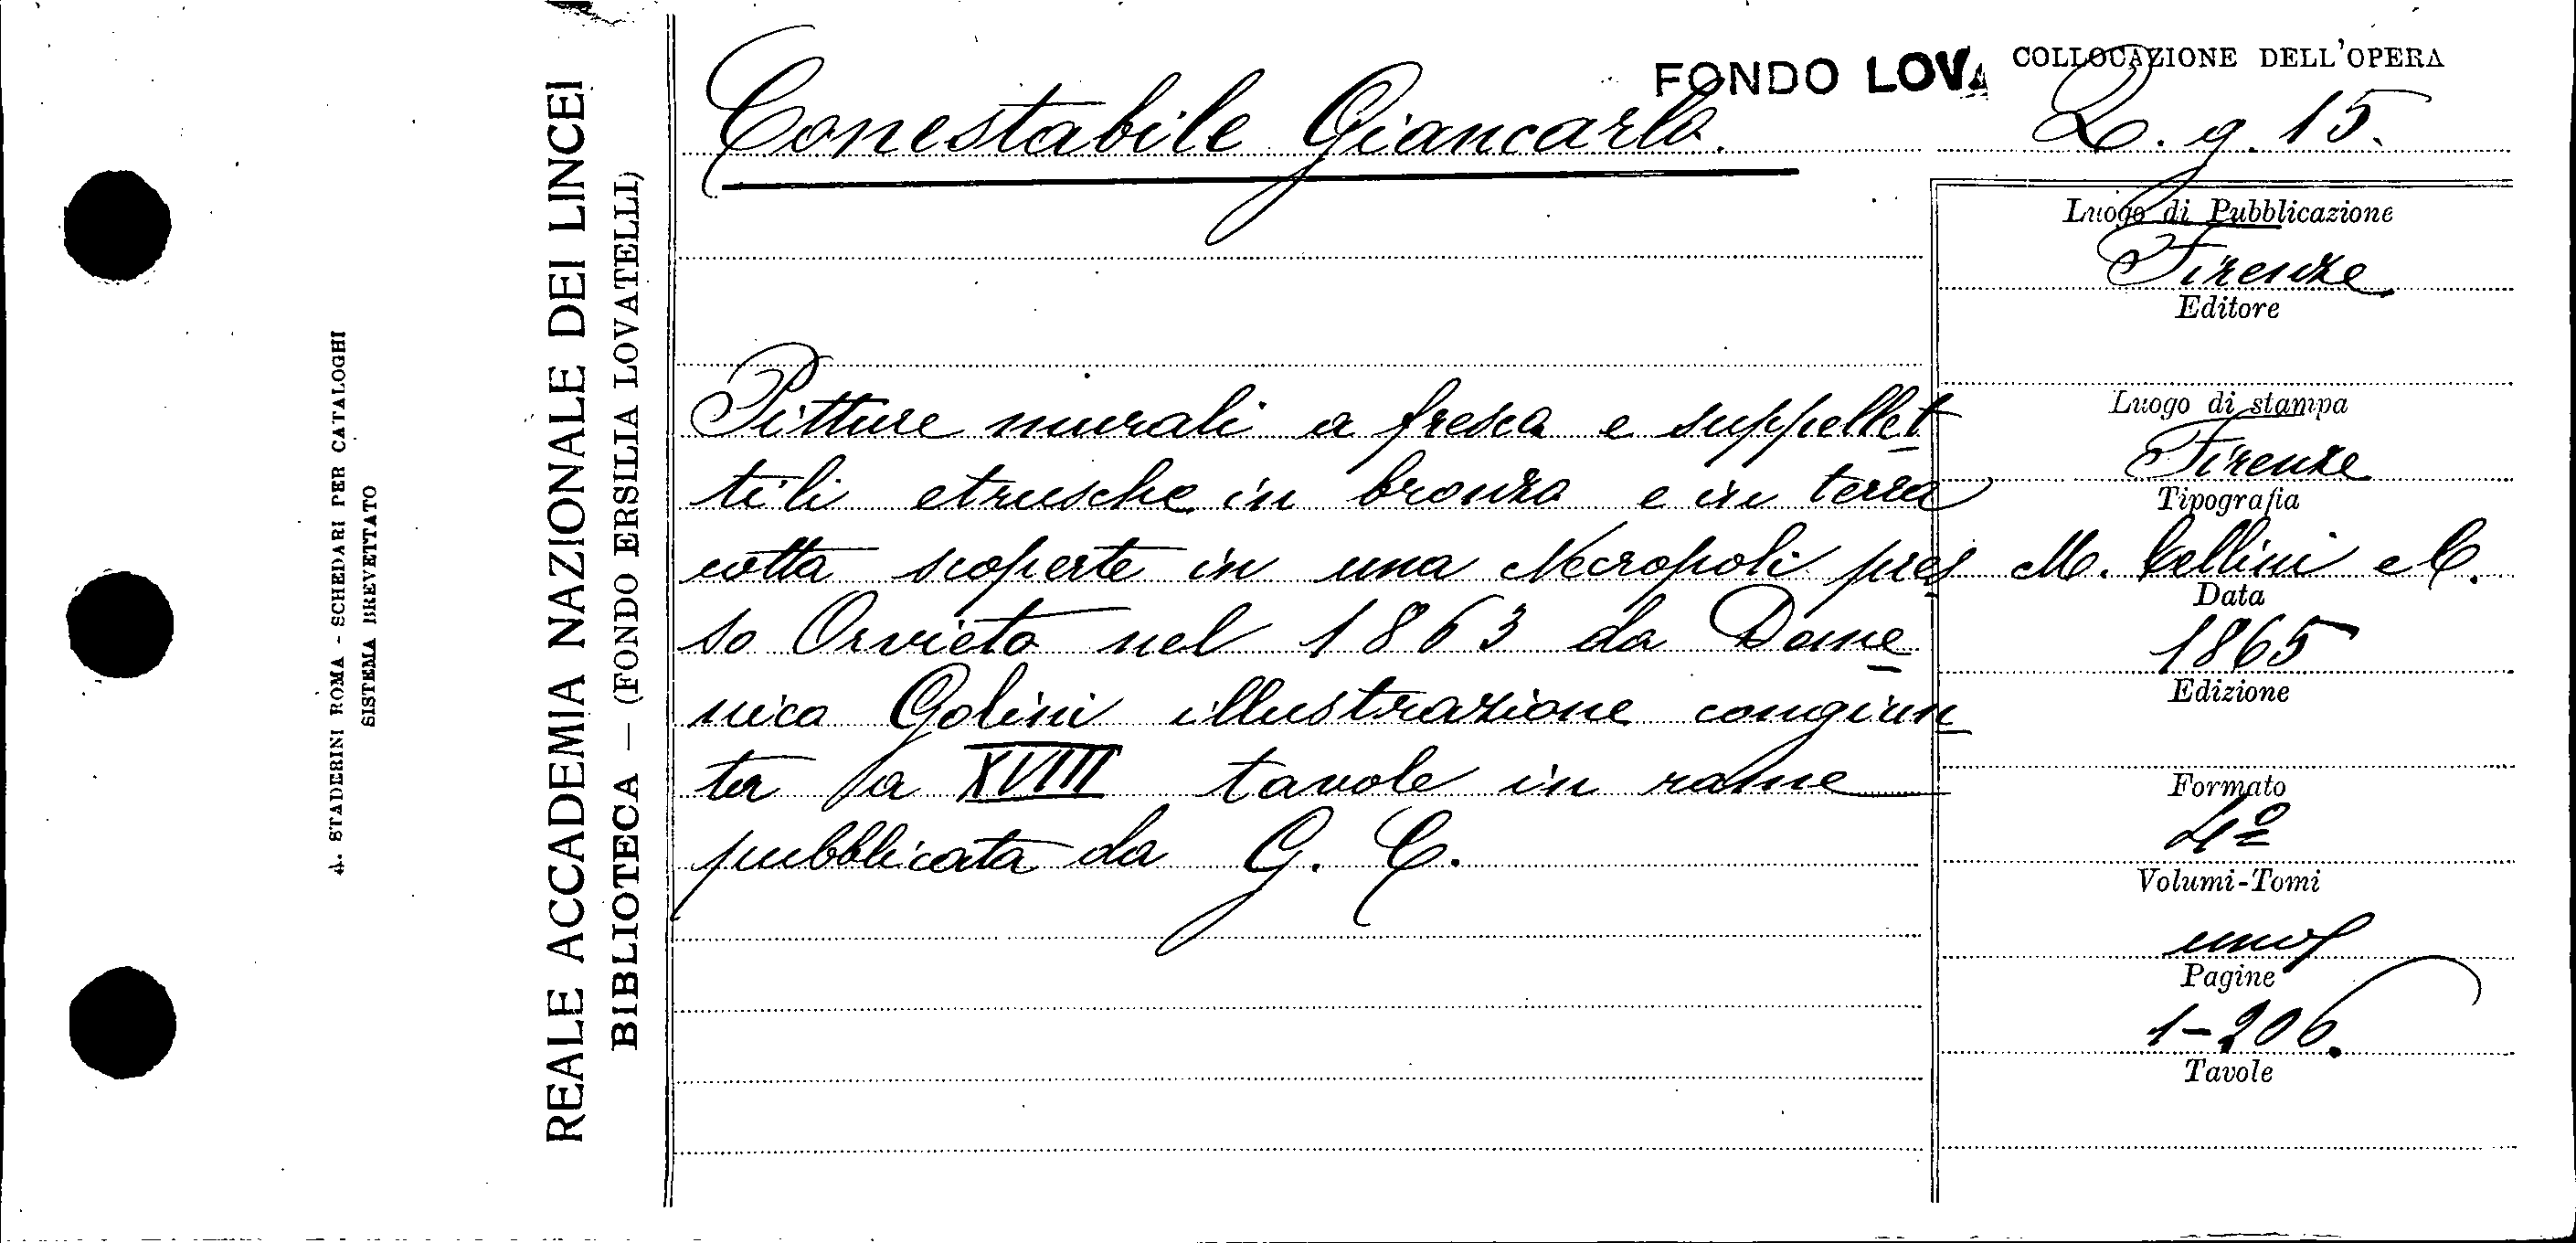 FONDO LOVA
COLLOCAZIONE DELL'OPERA
Conestabile Giancarlo.
L. g. 15.
Pitture murali a fresco e suppellet
tili etrusche in bronzo e in terra
cotta scoperte in una Necropoli pres
so Orvieto nel 1863 da Dome
nico Golini illustrazione congiun
ta a XVIII tavole in rame
pubblicata da G. C.
Luogo di Pubblicazione
Firenze
Editore
Luogo di stampa
Firenze
Tipografia
M. Cellini e C.
Data
1865
Edizione
Formato
4º
Volumi-Tomi
uno
Pagine
1-206.
Tavole
REALE ACCADEMIA NAZIONALE DEI LINCEI
BIBLIOTECA — (FONDO ERSILIA LOVATELLI)
A. STADERINI ROMA - SCHEDARI PER CATALOGHI
SISTEMA BREVETTATO